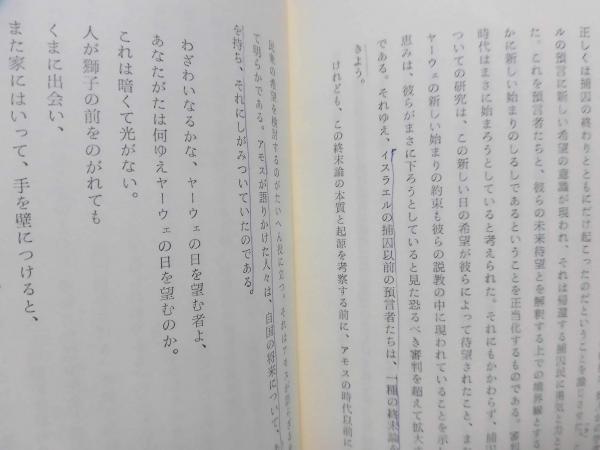 正しくは捕囚の終わりとともにだけ起こったのだということを論じ
ルの預言に新しい希望の意識が現われ、それは帰還する捕囚民に勇気と力と
た。これを預言者たちと、彼らの未来待望とを解釈する上での境界線とする
かに新しい始まりのしるしであるということを正当化するものである。審判
時代はまさに始まろうとしていると考えられた。それにもかかわらず、捕囚
ついての研究は、この新しい日の希望が彼らによって待望されたこと、また
ヤーウェの新しい始まりの約束も彼らの説教の中に現われていることを示し
恵みは、彼らがまさに下ろうとしていると見た恐るべき審判を超えて拡大す
である。それゆえ、イスラエルの捕囚以前の預言者たちは、一種の終末論を
きよう。
けれども、この終末論の本質と起源を考察する前に、アモスの時代以前に
民衆の希望を検討するのがたいへん役に立つ。それはアモスが語りかけ
て明らかである。アモスが語りかけた人々は、自国の将来について、
を持ち、それにしがみついていたのである。
わざわいなるかな、ヤーウェの日を望む者よ、
あなたがたは何ゆえヤーウェの日を望むのか。
これは暗くて光がない。
人が獅子の前をのがれても
くまに出会い、
また家にはいって、手を壁につけると、